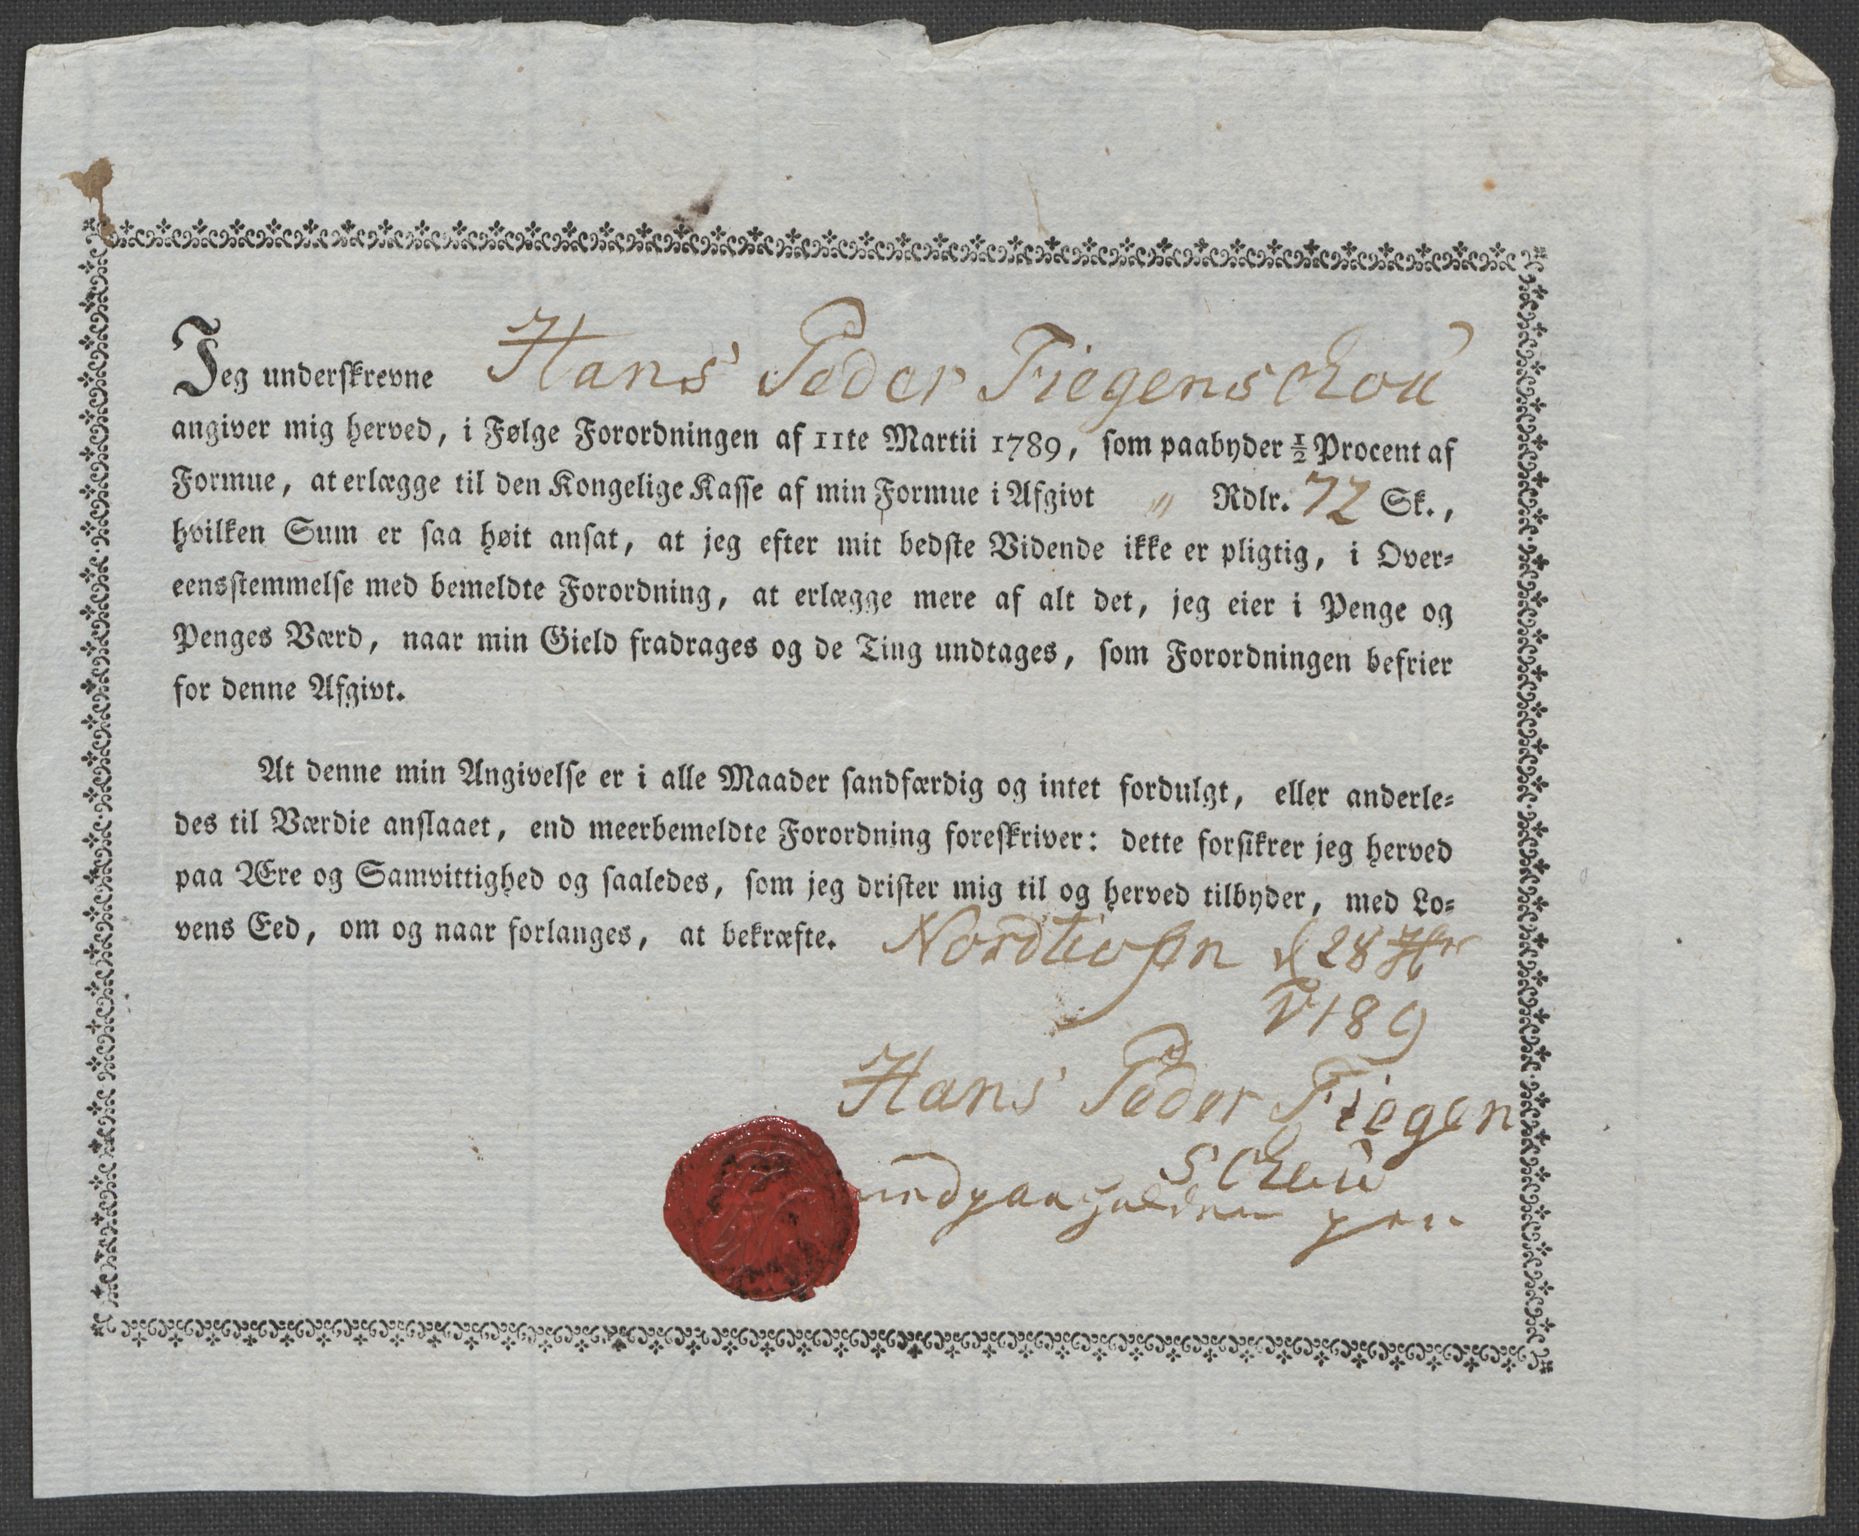 Jeg underskrevne Hans Peder Fiegenschou
angiver mig herved, i Følge Forordningen af 11te Martii 1789, som paabyder ½ Procent af
Formue, at erlægge til den Kongelige Kasse af min Formue i Afgivt " Rdlr. 72 Sk.,
hvilken Sum er saa høit ansat, at jeg efter mit bedste Vidende ikke er pligtig, i Over=
eensstemmelse med bemeldte Forordning, at erlægge mere af alt det, jeg eier i Penge og
Penges Værd, naar min Gield fradrages og de Ting undtages, som Forordningen befrier
for denne Afgivt.
At denne min Angivelse er i alle Maader sandfærdig og intet fordulgt, eller anderle=
des til Værdie anslaaet, end meerbemeldte Forordning foreskriver: dette forsikrer jeg herved
paa Ære og Samvittighed og saaledes, som jeg drister mig til og herved tilbyder, med Lo=
vens Eed, om og naar forlanges, at bekræfte. d 28
Hans Peder Fiegen
schou